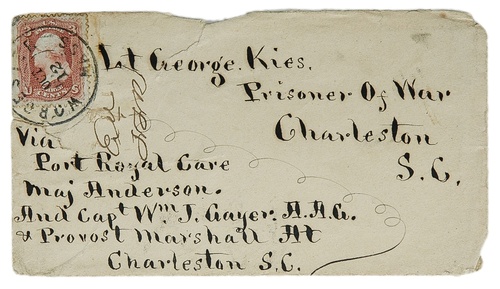 Lt George. Kies.
Prisoner Of War
Charleston
S. C.
Via
Port Royal Care
Maj Anderson.
And Capt Wm J. Gayer. A.A.G.
& Provost Marshall At
Charleston S.C.